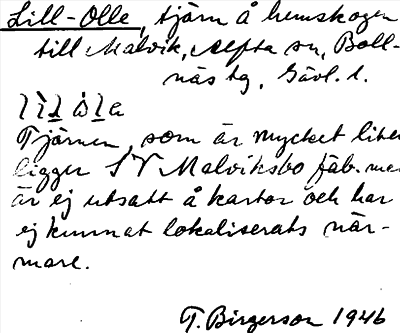 Lill-Olle, tjärn å hemskogen
till Malvik, Alfta sn, Boll-
näs tg, Gävl. l.
Tjärnen, som är mycket liten
ligger SV Malviksbo fäb. men
är ej utsatt å kartor och har
ej kunnat lokaliserats när-
mare.
T. Birgerson 1946